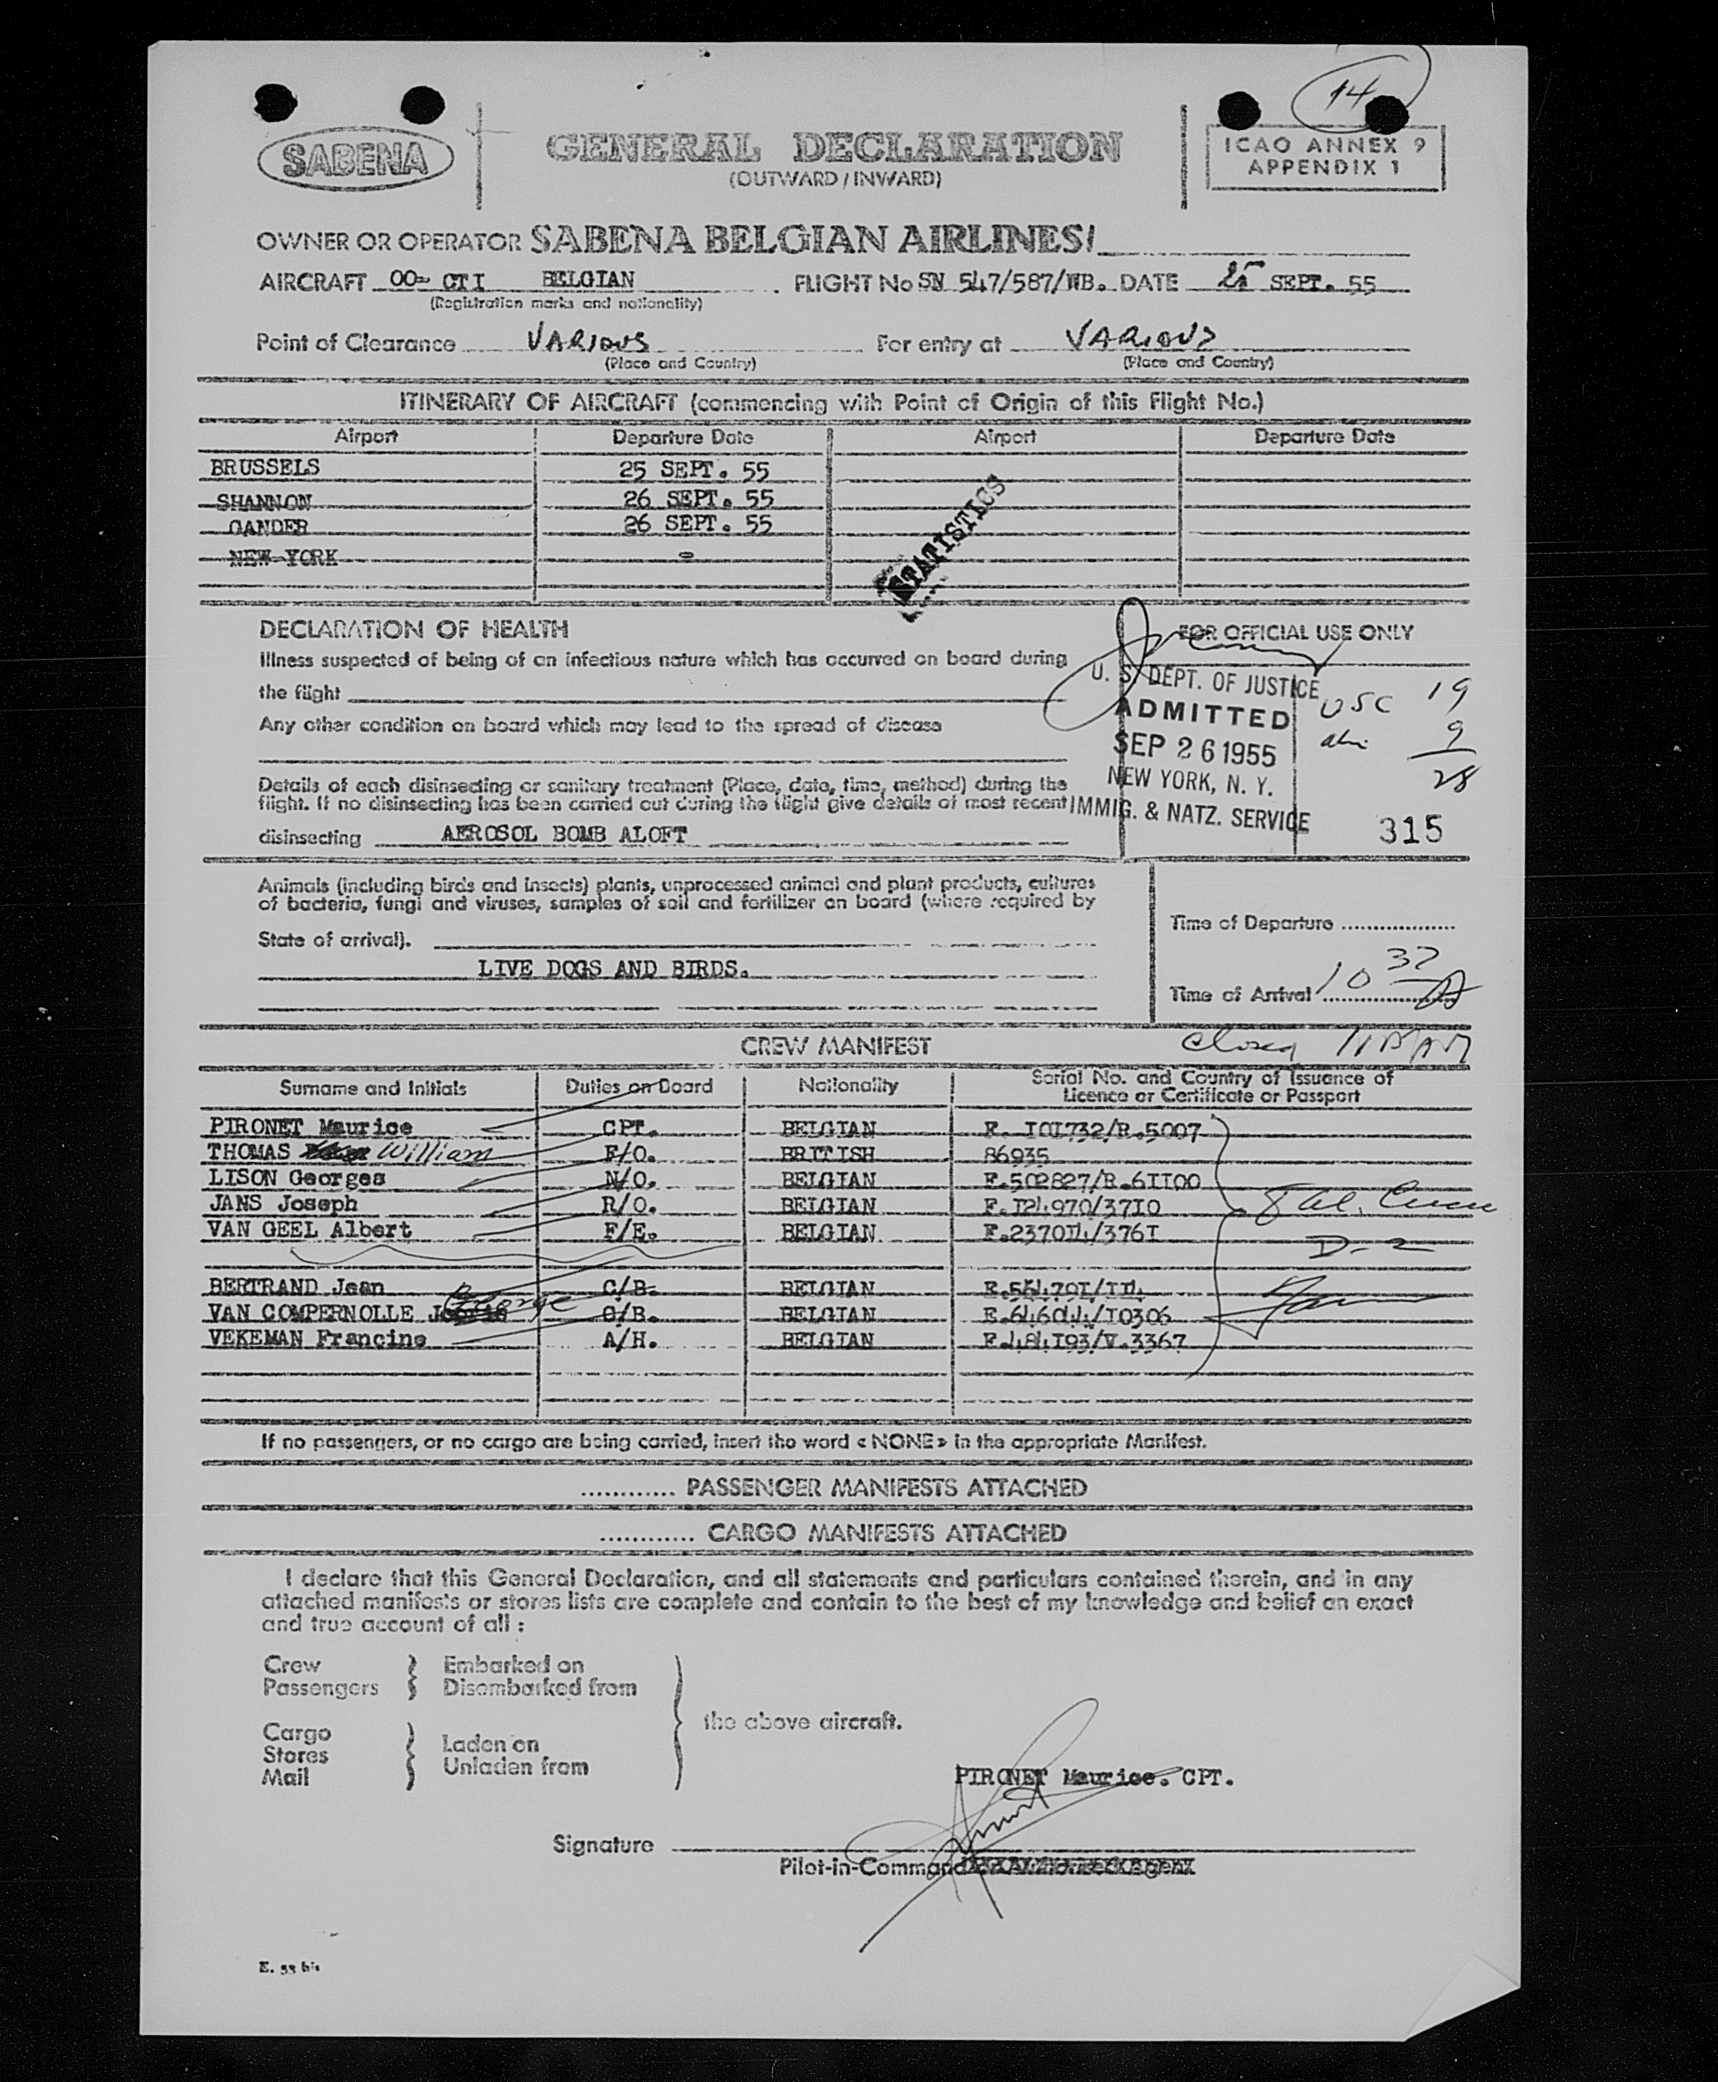 14
SABENA
GENERAL DECLARATION
(OUTWARD / INWARD)
ICAO ANNEX 9
APPENDIX 1
OWNER OR OPERATOR SABENA BELGIAN AIRLINES/
AIRCRAFT OO- CTI BELGIAN FLIGHT No SN 547/587/WB. DATE 25 SEPT. 55
(Registration marks and nationality)
Point of Clearance VARIOUS For entry at VARIOUS
(Place and Country) (Place and Country)
ITINERARY OF AIRCRAFT (commencing with Point of Origin of this Flight No.)
Airport Departure Date Airport Departure Date
BRUSSELS 25 SEPT. 55
SHANNON 26 SEPT. 55
GANDER 26 SEPT. 55
NEW-YORK -
STATISTICS
DECLARATION OF HEALTH
Illness suspected of being of an infectious nature which has occurred on board during
the flight
Any other condition on board which may lead to the spread of disease
Details of each disinsecting or sanitary treatment (Place, date, time, method) during the
flight. If no disinsecting has been carried out during the flight give details of most recent
disinsecting AEROSOL BOMB ALOFT
FOR OFFICIAL USE ONLY
U. S. DEPT. OF JUSTICE
ADMITTED
SEP 26 1955
NEW YORK, N. Y.
IMMIG. & NATZ. SERVICE
USC 19
9
28
315
Animals (including birds and insects) plants, unprocessed animal and plant products, cultures
of bacteria, fungi and viruses, samples of soil and fertilizer on board (where required by
State of arrival).
LIVE DOGS AND BIRDS.
Time of Departure
Time of Arrival 10 37
CREW MANIFEST
Surname and Initials Duties on Board Nationality Serial No. and Country of Issuance of
Licence or Certificate or Passport
PIRONET Maurice CPT. BELGIAN E. I0I732/R.5007
THOMAS William F/O. BRITISH 86935
LISON Georges N/O. BELGIAN E.502827/R.6II00
JANS Joseph R/O. BELGIAN E.I24970/37I0
VAN GEEL Albert F/E. BELGIAN E.2370I4/376I
BERTRAND Jean C/B- BELGIAN
VAN COMPERNOLLE George C/B. BELGIAN E.646044/I0306
VEKEMAN Francine A/H. BELGIAN E.484I93/V.3367
D-2
If no passengers, or no cargo are being carried, insert the word « NONE » in the appropriate Manifest.
............ PASSENGER MANIFESTS ATTACHED
............ CARGO MANIFESTS ATTACHED
I declare that this General Declaration, and all statements and particulars contained therein, and in any
attached manifests or stores lists are complete and contain to the best of my knowledge and belief an exact
and true account of all :
Crew Embarked on
Passengers Disembarked from
the above aircraft.
Cargo
Stores Laden on
Mail Unladen from
PIRONET Maurice. CPT.
Signature
Pilot-in-Command
E. 53 bis